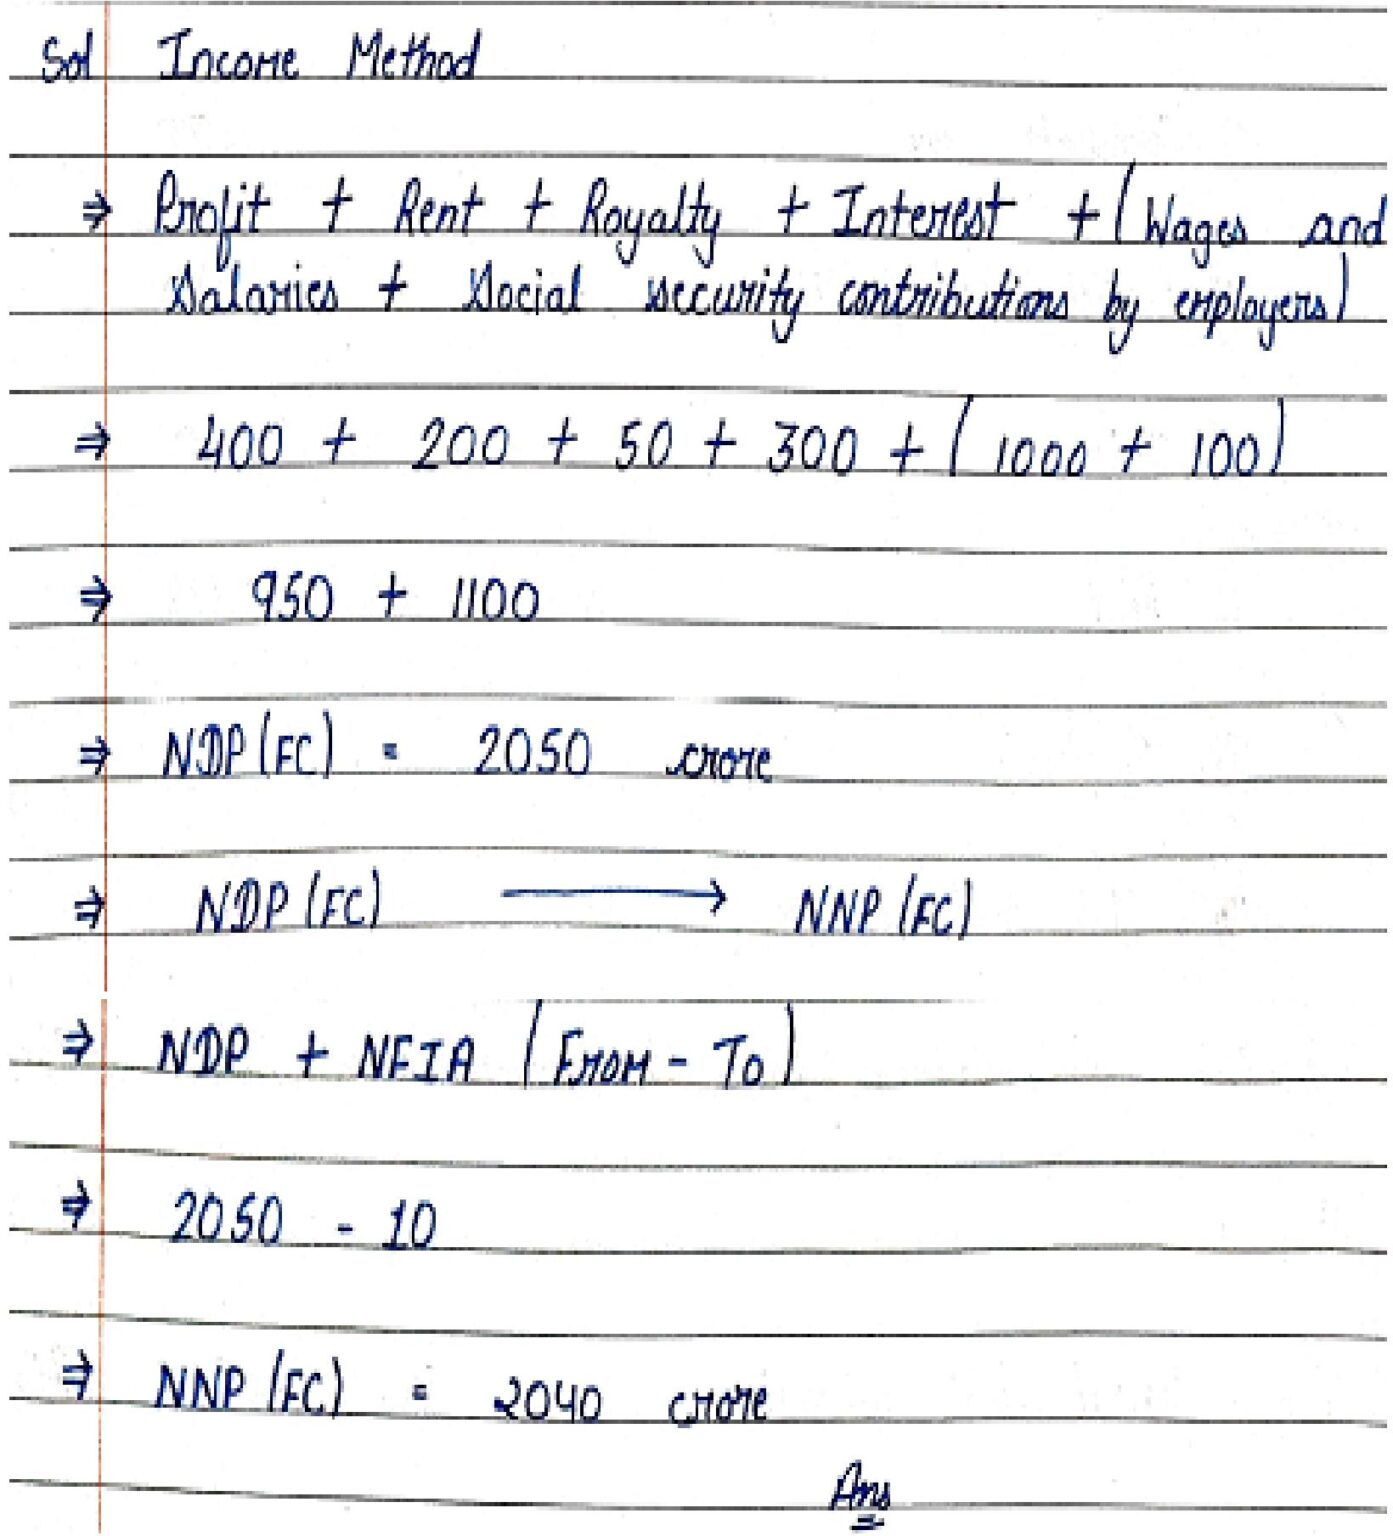 Sol Income Method
⇒ Profit + Rent + Royalty + Interest + (Wages and
Salaries + Social security contributions by employers)
⇒ 400 + 200 + 50 + 300 + (1000 + 100)
⇒ 950 + 1100
⇒ NDP (FC) = 2050 crore
⇒ NDP (FC) ⟶ NNP (FC)
⇒ NDP + NFIA (From - To)
⇒ 2050 - 10
⇒ NNP (FC) = 2040 crore
Ans